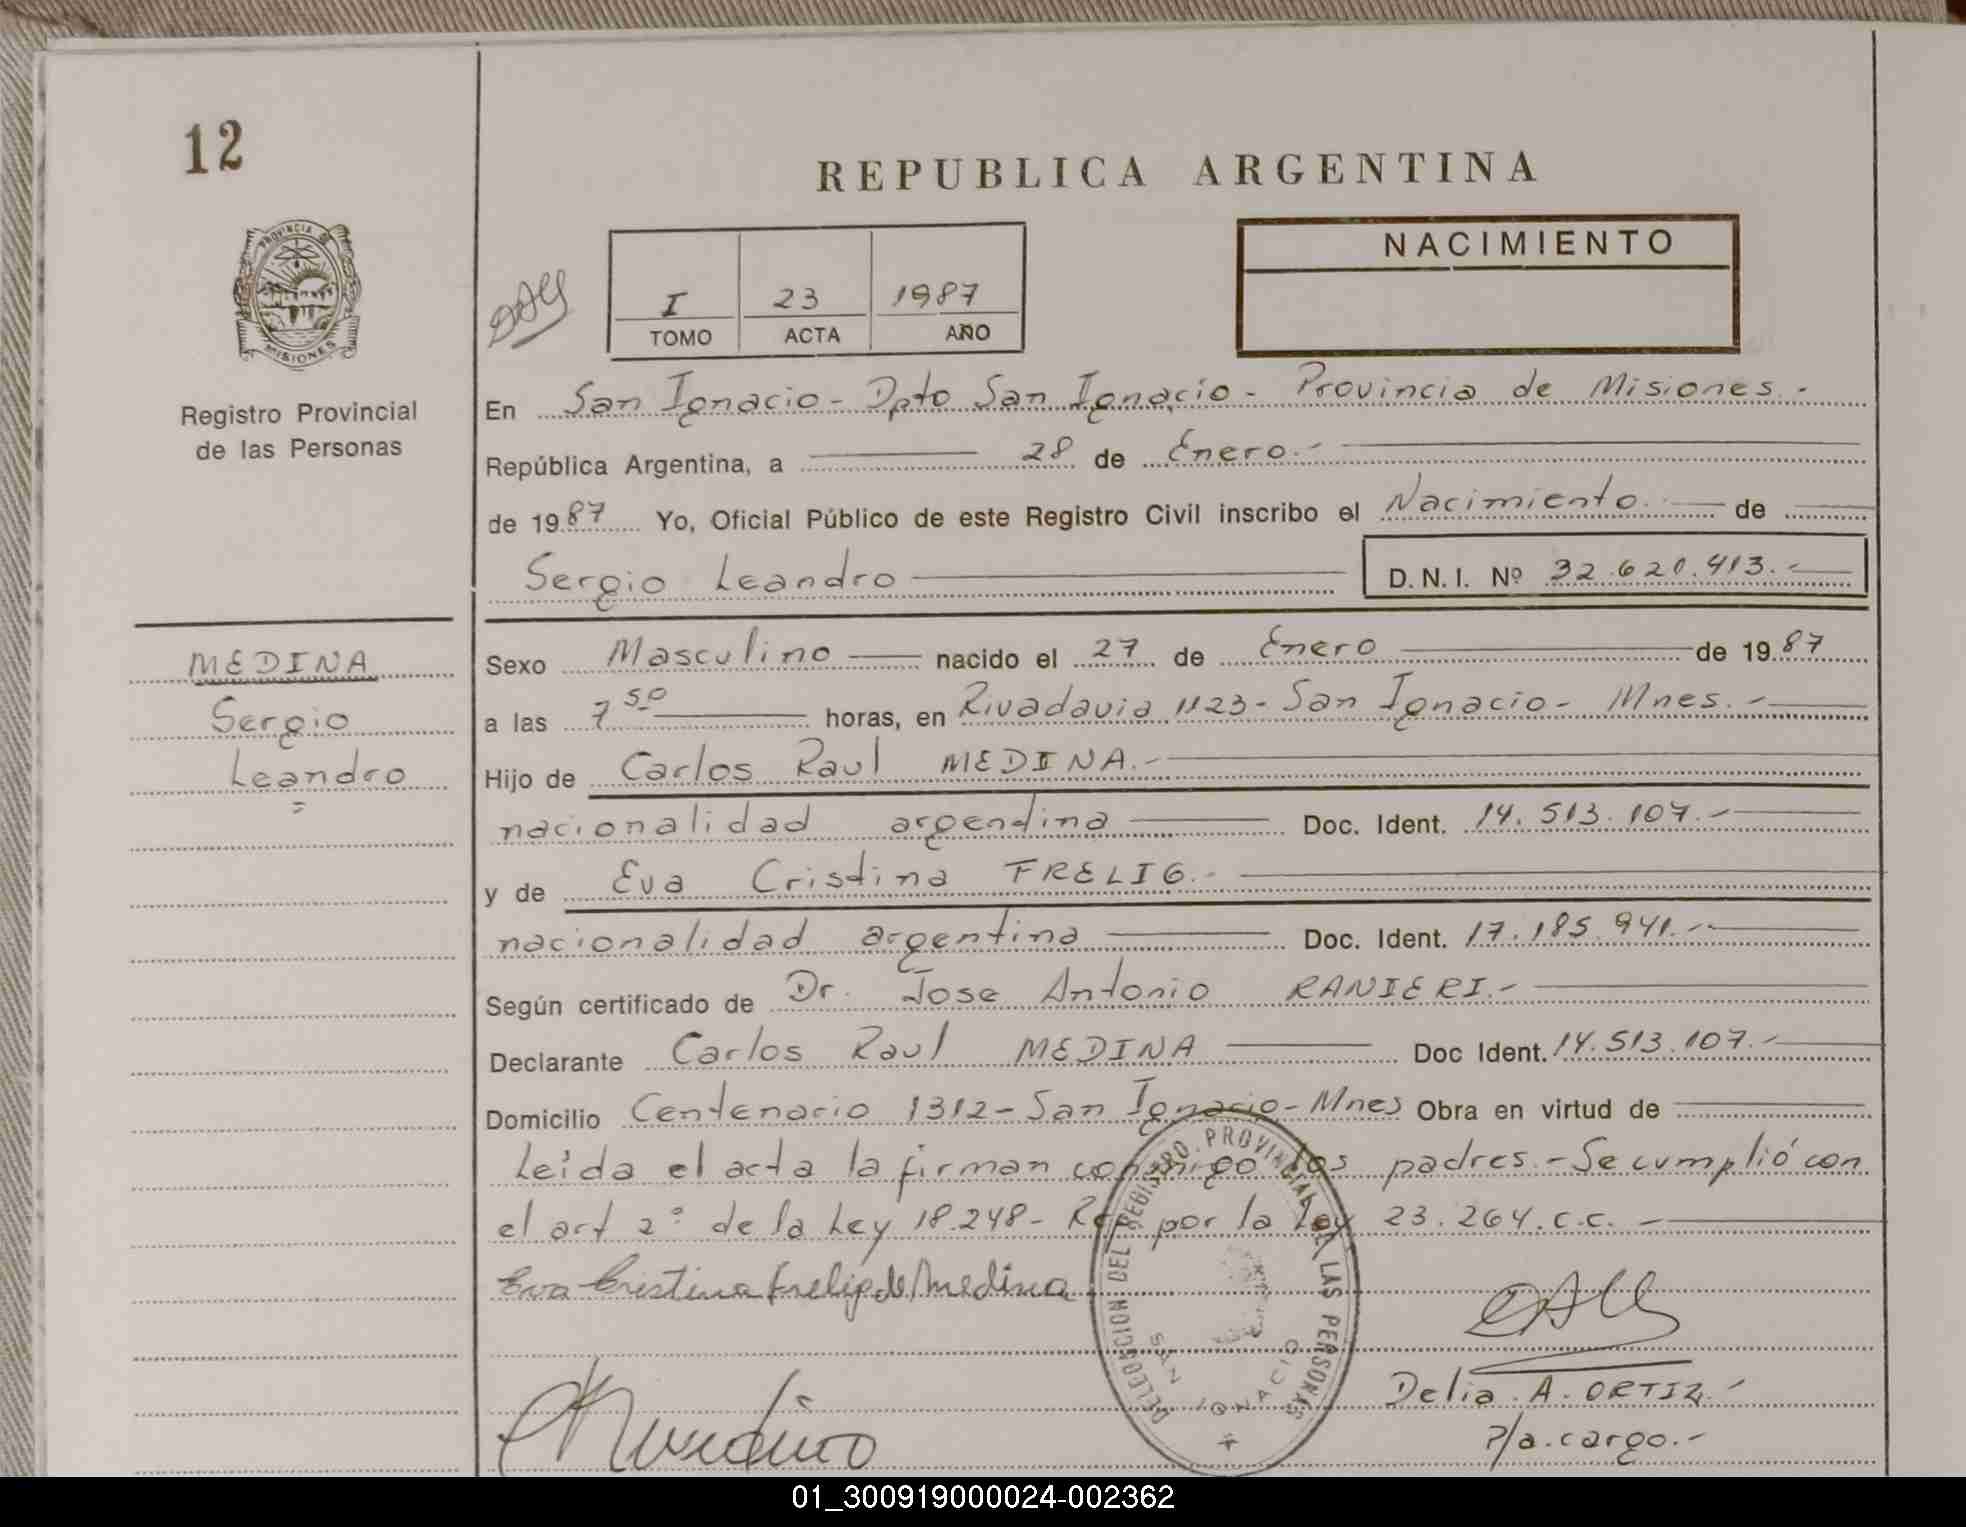 12
REPUBLICA ARGENTINA
PROVINCIA DE
MISIONES
Registro Provincial
de las Personas
NACIMIENTO
I 23 1987
TOMO ACTA AÑO
En San Ignacio - Dpto San Ignacio - Provincia de Misiones.-
República Argentina, a 28 de Enero.-
de 1987 Yo, Oficial Público de este Registro Civil inscribo el Nacimiento. de
Sergio Leandro D.N.I. Nº 32.620.413.-
MEDINA
Sergio
Leandro
Sexo Masculino nacido el 27 de Enero de 1987
a las 7 50 horas, en Rivadavia 1123 - San Ignacio - Mnes.-
Hijo de Carlos Raul MEDINA.-
nacionalidad argentina Doc. Ident. 14.513.107.-
y de Eva Cristina FRELIG.-
nacionalidad argentina Doc. Ident. 17.185.941.-
Según certificado de Dr. Jose Antonio RANIERI.-
Declarante Carlos Raul MEDINA Doc Ident. 14.513.107.-
Domicilio Centenario 1312 - San Ignacio - Mnes Obra en virtud de
Leída el acta la firman conmigo los padres.- Se cumplió con
el art 2º de la Ley 18.248 - Ref por la Ley 23.264.c.c.-
Eva Cristina Frelig de Medina
DELEGACION DEL REGISTRO PROVINCIAL DE LAS PERSONAS
SAN IGNACIO
Delia A. ORTIZ.-
P/a.cargo.-
01_300919000024-002362